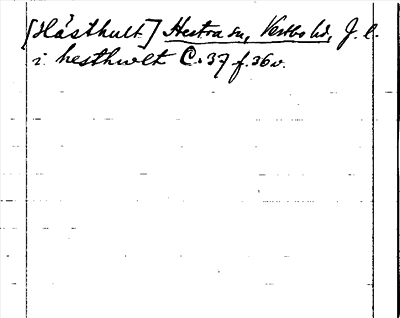 [Hästhult] Hestra sn, Västbo hd, J. l.
i hesthwlt C. 37 f. 36 v.